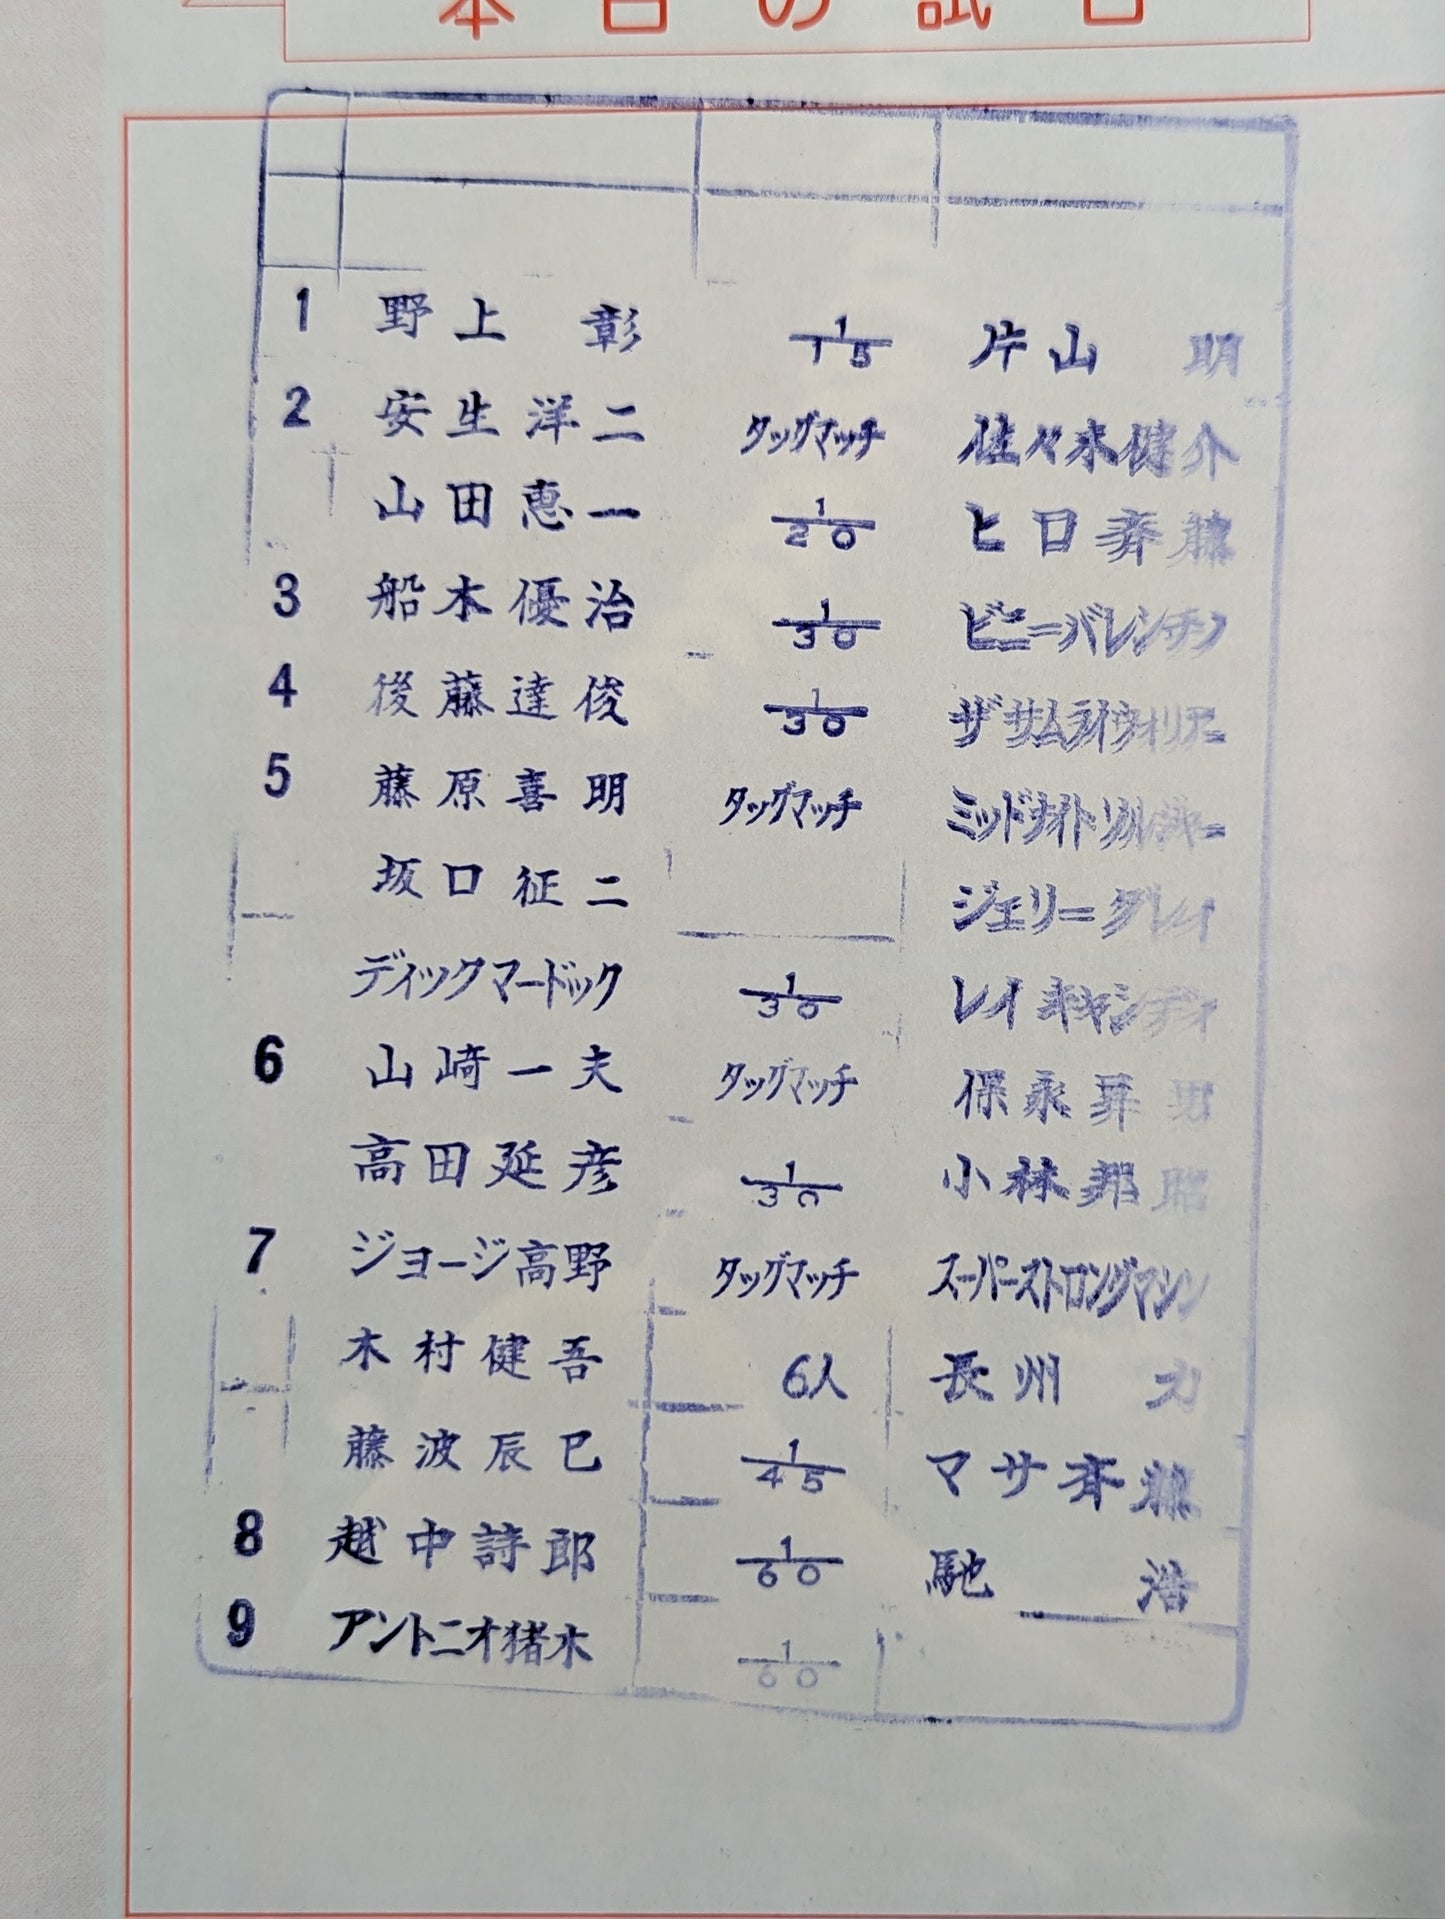 本日の試合
1 野上 彰 1/15 片山 明
2 安生洋二 タッグマッチ 佐々木健介
山田恵一 1/20 ヒロ斉藤
3 船木優治 1/30 ビニーバレンチノ
4 後藤達俊 1/30 ザ サムライウォリアー
5 藤原喜明 タッグマッチ ミッドナイトソルジャー
坂口征二 ジェリーグレイ
ディックマードック 1/30 レイ キャンディ
6 山崎一夫 タッグマッチ 保永昇男
高田延彦 1/30 小林邦昭
7 ジョージ高野 タッグマッチ スーパーストロングマシン
木村健吾 6人 長州 力
藤波辰巳 1/45 マサ斉藤
8 越中詩郎 1/60 馳 浩
9 アントニオ猪木 1/60